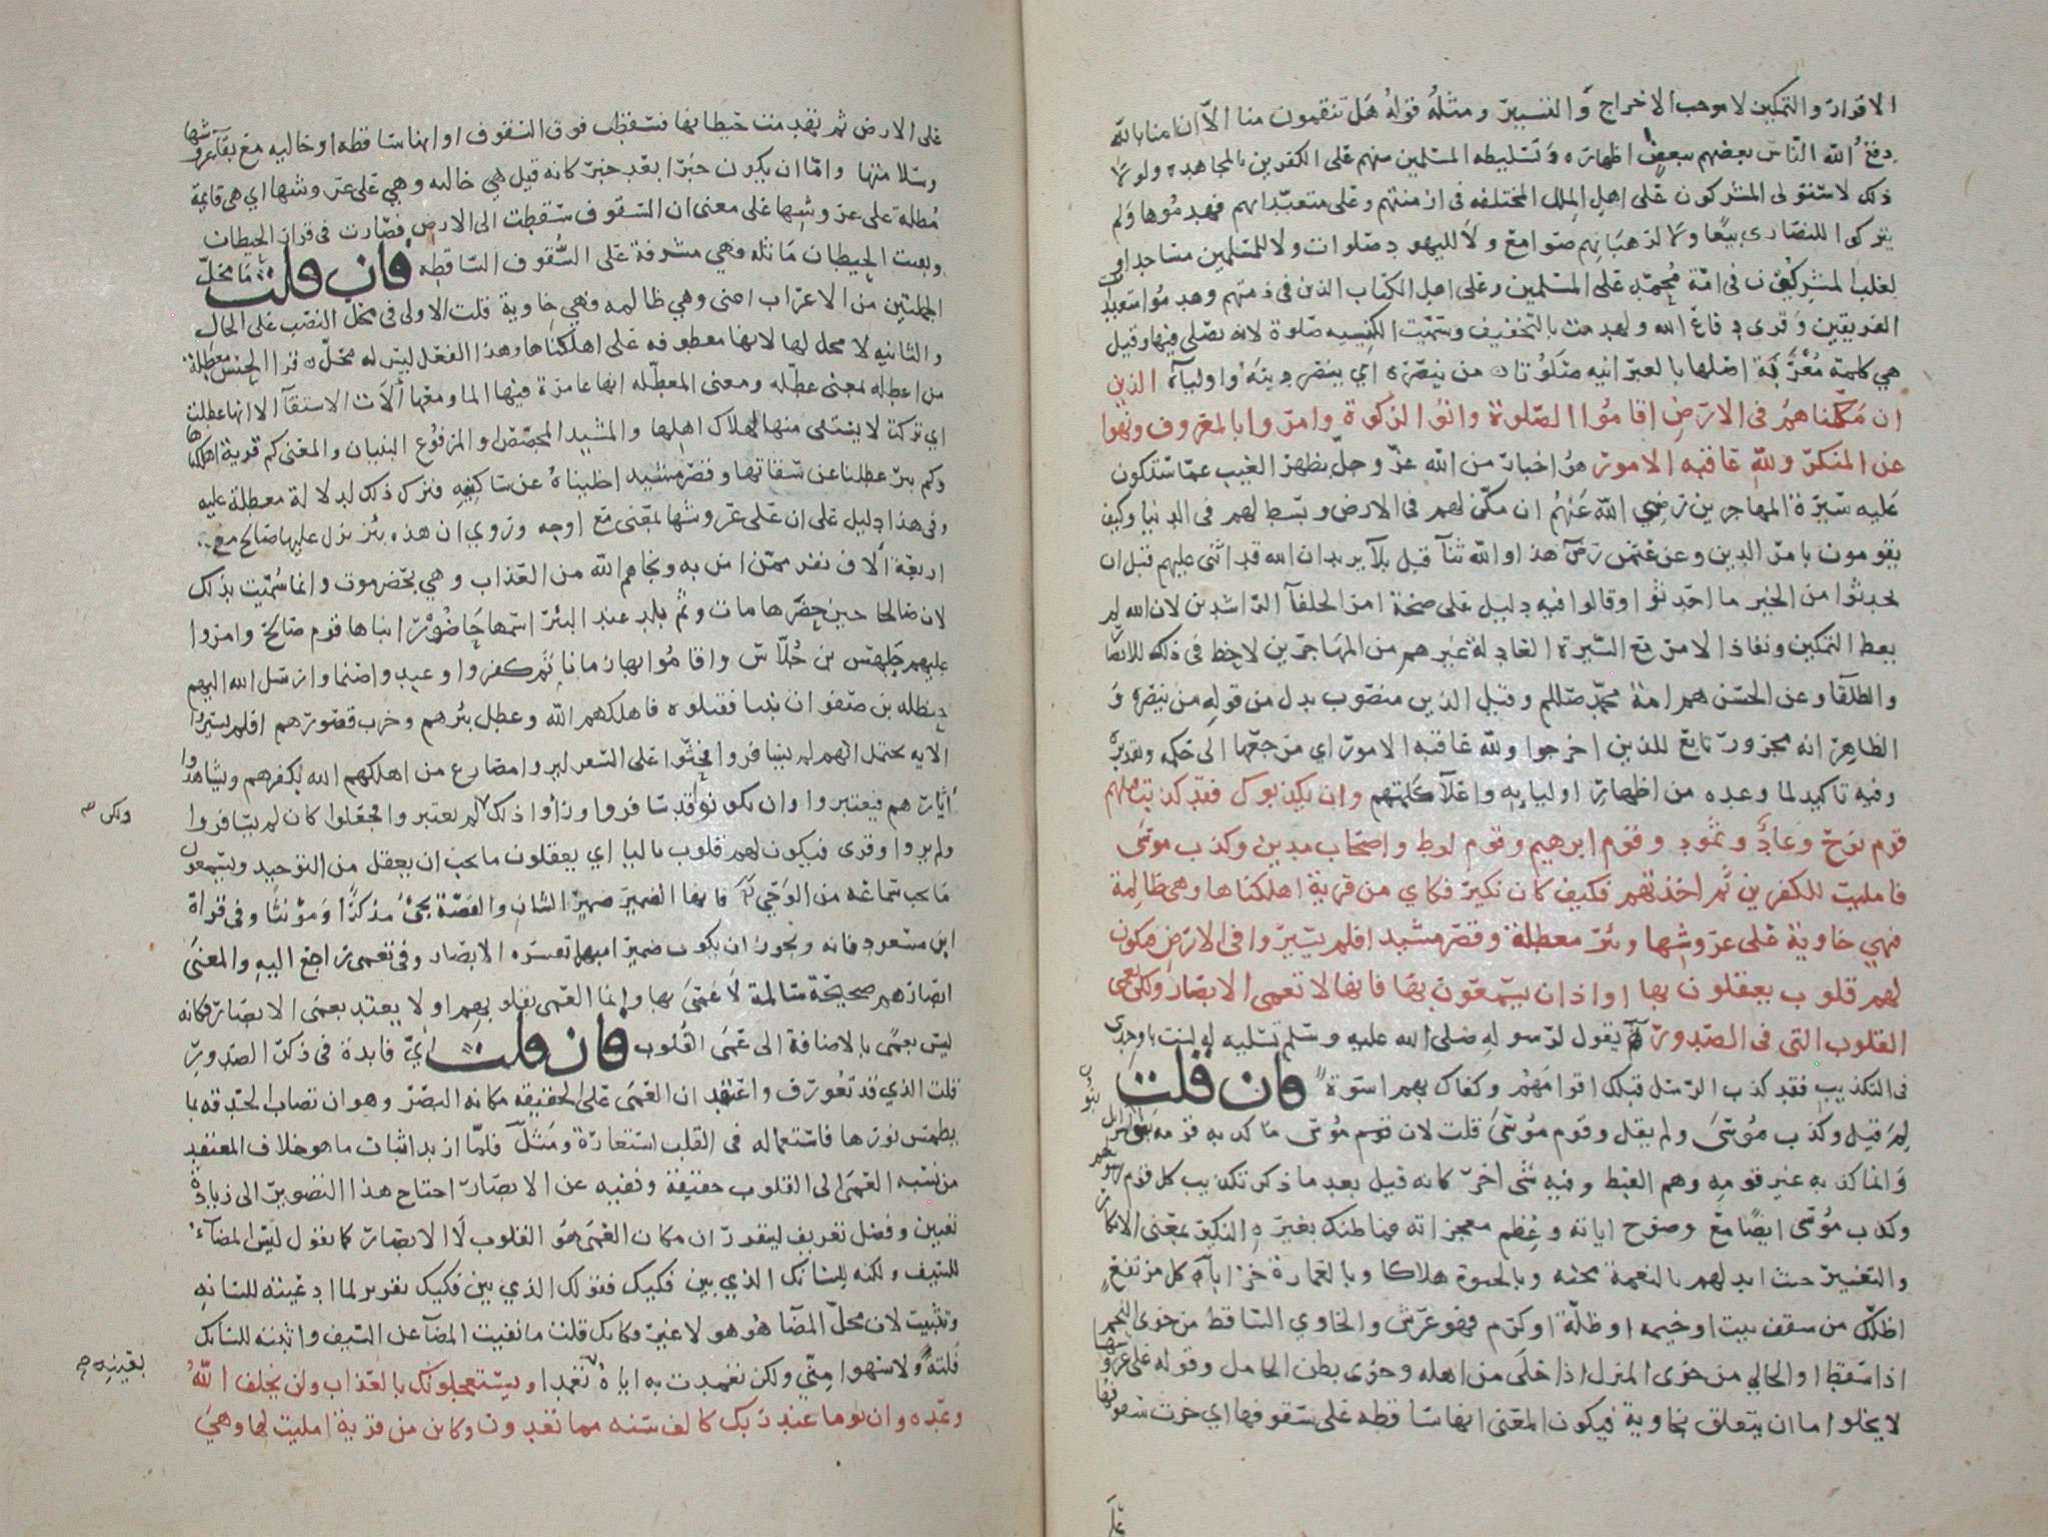 الاقرار والتمكين لا موجب الاخراج والتسيير ومثله قوله هل تنقمون منا الا ان امنا بالله
دفع الله الناس بعضهم ببعض اظهاره وتسليطه المسلمين منهم على الكفرين بالمجاهده ولولا
ذلك لاستولى المشركون على اهل الملل المختلفه في ازمنتهم وعلى متعبداتهم فهدموها ولم
يتركوا للنصارى بيعا ولا لرهبانهم صوامع ولا لليهود صلوات ولا للمسلمين مساجد او
لغلب المشركون في امة محمد على المسلمين وعلى اهل الكتاب الذين في ذمتهم وهدموا متعبدات
الفريقين وقرى دفاع الله ولهدمت بالتخفيف وسميت الكنيسه صلوة لانه يصلى فيها وقيل
هي كلمة معربة اصلها بالعبرانيه صلوتا من ينصره اي ينصر دينه واولياه الذين
ان مكناهم في الارض اقاموا الصلوة واتوا الزكوة وامروا بالمعروف ونهوا
عن المنكر ولله عاقبه الامور هو اخبار من الله عز وجل بظهر الغيب عما ستكون
عليه سيرة المهاجرين رضي الله عنهم ان مكن لهم في الارض وبسط لهم في الدنيا وكيف
يقومون بامر الدين وعن عثمن رض هذا والله ثنا قبل بلا يريد ان الله قد اثنى عليهم قبل ان
يحدثوا من الخير ما احدثوا وقالوا فيه دليل على صحة امر الخلفا الراشدين لان الله لم
يعط التمكين ونفاذ الامر مع السيرة العادلة غيرهم من المهاجرين لا حظ في ذلك للانصار
والطلقا وعن الحسن هم امة محمد صللم وقيل الذين منصوب بدل من قوله من ينصره و
الظاهر انه مجرور تابع للذين اخرجوا ولله عاقبه الامور اي مرجعها الى حكمه وتقديره
وفيه تاكيد لما وعده من اظهار اوليايه واعلآ كلمتهم وان يكذبوك فقد كذبت قبلهم
قوم نوح وعاد وثمود وقوم ابرهيم وقوم لوط واصحاب مدين وكذب موسى
فامليت للكفرين ثم اخذتهم فكيف كان نكير فكاي من قرية اهلكناها وهي ظالمة
فهي خاوية على عروشها وبئر معطلة وقصر مشيد افلم يسيروا في الارض فتكون
لهم قلوب يعقلون بها او اذان يسمعون بها فانها لا تعمى الابصار ولكن تعمى
القلوب التي في الصدور يقول لرسوله صلى الله عليه وسلم تسليه له لست باوحدي
في التكذيب فقد كذب الرسل قبلك اقوامهم وكفاك بهم اسوة فان قلت
لم قيل وكذب موسى ولم يقل وقوم موسى قلت لان قوم موسى ما كذبه قومه بنو اسرائيل
وانما كذبه غير قومه وهم القبط وفيه شى اخر كانه قيل بعد ما ذكر تكذيب كل قوم رسولهم
وكذب موسى ايضا مع وضوح اياته وعظم معجزاته فما ظنك بغيره النكير بمعنى الانكار
والتغيير حيث ابدلهم بالنعمة محنه وبالحيوة هلاكا وبالعمارة خرابا كل مرتفع
اظلك من سقف بيت او خيمه او ظلة او كرم فهو عرش والخاوي الساقط من خوى النجم
اذا سقط او الخالي من خوى المنزل اذا خلى من اهله وخوى بطن الحامل وقوله على عروشها
لا يخلوا اما ان يتعلق بخاوية فيكون المعنى انها ساقطه على سقوفها اي خرت سقوفها
على الارض ثم تهدمت حيطانها فسقطت فوق السقوف او انها ساقطه او خاليه مع بقآ عروشها
وسلامتها واما ان يكون خبرا بعد خبر كانه قيل هي خاليه وهي على عروشها اي هي قايمة
مطلة على عروشها على معنى ان السقوف سقطت الى الارض فصارت في قرار الحيطان
وبقيت الحيطان ماثله فهي مشرفة على السقوف الساقطه فان قلت ما محل
الجملتين من الاعراب اعنى وهي ظالمه فهي خاوية قلت الاولى في محل النصب على الحال
والثانيه لا محل لها لانها معطوفه على اهلكناها وهذا الفعل ليس له محل قرا الحسن معطلة
من اعطله بمعنى عطله ومعنى المعطله انها عامرة فيها الما ومعها آلات الاستقآ الا انها عطلت
اي تركت لا يستقى منها لهلاك اهلها والمشيد المجصص او المرفوع البنيان والمعنى كم قرية اهلكناها
وكم بير عطلنا عن سقاتها وقصر مشيد اخليناه عن ساكنيه فترك ذلك لدلالة معطلة عليه
وفي هذا دليل على ان على عروشها بمعنى مع اوجه وروي ان هذه بئر نزل عليها صالح مع
اربعة آلاف نفر ممن امن به ونجاهم الله من العذاب وهي بحضرموت وانما سميت بذلك
لان صالحا حين حضرها مات وثم بلد عند البئر اسمها حاضورا بناها قوم صالح وامروا
عليهم جلهس بن جلاس واقاموا بها زمانا ثم كفروا وعبدوا صنما وارسل الله اليهم
حنظله بن صفوان نبيا فقتلوه فاهلكهم الله وعطل بئرهم وخرب قصورهم افلم يسيروا
الايه يحتمل انهم لم يسافروا فحثوا على السفر ليروا مصارع من اهلكهم الله بكفرهم ويشاهدوا
آثارهم فيعتبروا وان يكونوا قد سافروا وراوا ذلك ولكن لم يعتبروا فجعلوا كان لم يسافروا
ولم يروا وقرى فيكون لهم قلوب باليا اي يعقلون ما يجب ان يعقل من التوحيد ويسمعون
ما يجب سماعه من الوحي فانها الضمير ضمير الشان والقصة يجئ مذكرا ومؤنثا وفي قراة
ابن مسعود فانه ويجوز ان يكون ضميرا مبهما تفسره الابصار وفي تعمى راجع اليه والمعنى
ابصارهم صحيحة سالمة لا عمى بها وانما العمى بقلوبهم او لا يعتد بعمى الابصار فكانه
ليس بعمى بالاضافة الى عمى القلوب فان قلت اي فايدة في ذكر الصدور
قلت الذي قد تعورف واعتقد ان العمى على الحقيقه مكانه البصر وهو ان تصاب الحدقه بما
يطمس نورها فاستعماله في القلب استعارة ومثل فلما اريد اثبات ما هو خلاف المعتقد
من نسبه العمى الى القلوب حقيقة ونفيه عن الابصار احتاج هذا التصوير الى زيادة
تعيين وفضل تعريف ليتقرر ان مكان العمى هو القلوب لا الابصار كما تقول ليس المضآء
للسيف ولكنه للسانك الذي بين فكيك فقولك الذي بين فكيك تقرير لما ادعيته للسانه
وتثبيت لان محل المضا هو هو لا غير وكانك قلت ما نفيت المضآ عن السيف واثبته للسانك
فلتة ولا سهوا مني ولكن تعمدت به اياه بعينه تعمدا ويستعجلونك بالعذاب ولن يخلف الله
وعده وان يوما عند ربك كالف سنه مما تعدون وكاين من قرية امليت لها وهي